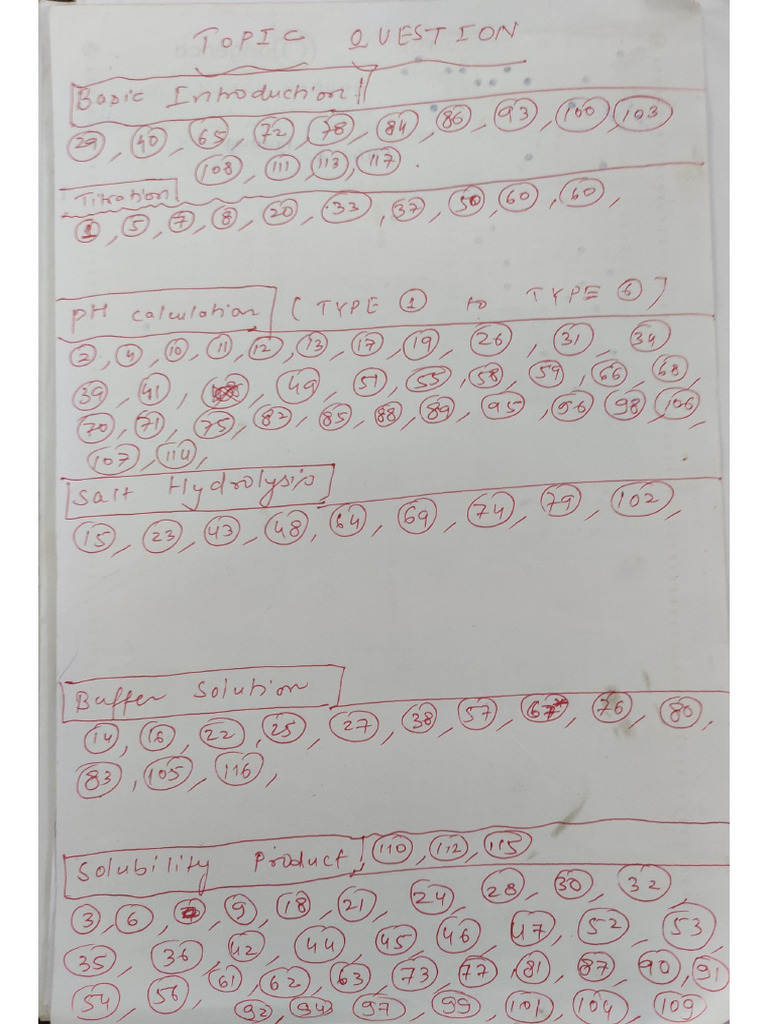 TOPIC QUESTION
Basic Introduction
29, 40, 65, 72, 78, 84, 86, 93, 100, 103
108, 111, 113, 117.
Titration
1, 5, 7, 8, 20, 33, 37, 50, 60, 60,
pH calculation [TYPE 1 to TYPE 6]
2, 4, 10, 11, 12, 13, 17, 19, 26, 31, 34
39, 41, 49, 51, 55, 58, 59, 66, 68,
70, 71, 75, 82, 85, 88, 89, 95, 96, 98, 106,
107, 114,
Salt Hydrolysis
15, 23, 43, 48, 64, 69, 74, 79, 102,
Buffer Solution
14, 16, 22, 25, 27, 38, 57, 67, 76, 80,
83, 105, 116,
Solubility Product 110, 112, 115
3, 6, 9, 18, 21, 24, 28, 30, 32,
35, 36, 42, 44, 45, 46, 47, 52, 53,
54, 56, 61, 62, 63, 73, 77, 81, 87, 90, 91
92, 94, 97, 99, 101, 104, 109